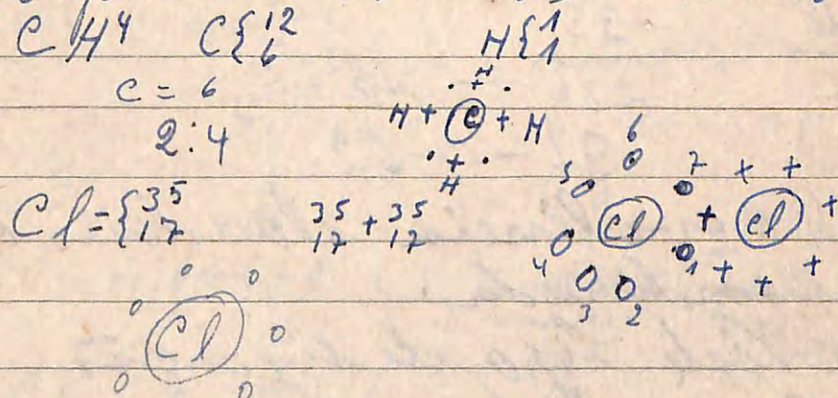 CH4 C{12 6 H{1 1
C = 6
2:4
H
H + C + H
+
H
Cl = {35 17 35 17 + 35 17
5 6 7
Cl + Cl
4 3 2 1
Cl